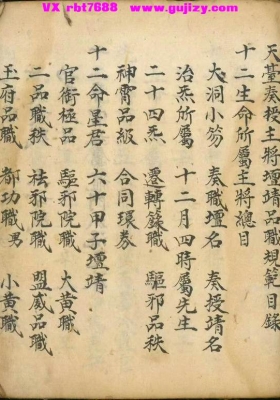 VX rbt7688 www.gujizy.com
天臺奏授主將壇靖品職規範目錄
十二生命所屬主將總目
大洞小芴 奏職壇名 奏授靖名
治炁所屬 十二月四時屬先生
二十四炁 遷轉籙職 驅邪品秩
神霄品級 合同環券
十二命星君 六十甲子壇靖
官銜極品 驅邪院職 大黃職
二品職秩 祛邪院職 盟威品職
玉府品職 都功職 小黃職